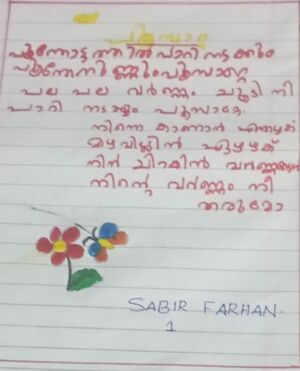 പൂമ്പാറ്റ
പൂന്തോട്ടത്തിൽ പാറി നടക്കും
പൂന്തേനുണ്ണും പൂമ്പാറ്റെ
പല പല വർണ്ണം ചൂടി നീ
പാറി നടക്കും പൂമ്പാറ്റേ
നിന്നെ കാണാൻ എന്തഴക്
മഴവില്ലിൻ ഏഴഴക്
നിന്റെ വർണ്ണം നീ
തരുമോ
SABIR FARHAN.
1